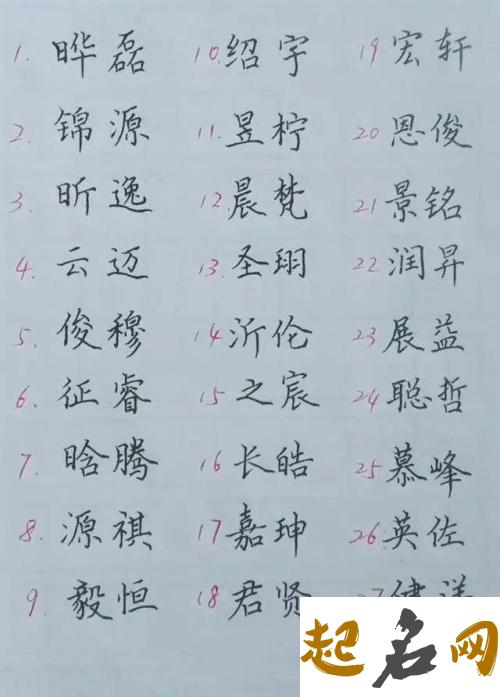 1. 晔磊 10. 绍宇 19 宏轩
2. 锦源 11. 昱柠 20 恩俊
3. 昕逸 12. 晨梵 21 景铭
4. 云迈 13. 圣珝 22 润昇
5. 俊穆 14 沂伦 23 展益
6. 征睿 15 之宸 24 聪哲
7. 晗腾 16 长皓 25 慕峰
8. 源祺 17 嘉珅 26 英佐
9. 毅恒 18 君贤
起名网